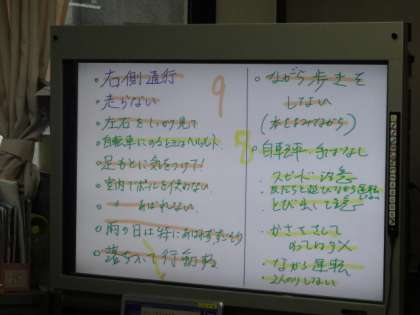 ・右側通行
・走らない
・左右をしっかり見て
・自転車にのるときはヘルメット
・足もとに気をつけて!
・室内でボールを使わない
・〃 あばれない
・雨の日は特に
・落ちついて行動する
9
・ながら歩きを
しない
(本をよみながら)
8
・自転車 手ばなし
・スピード注意
・友だちと遊びながら運転しない
・とび出し注意
・かさをさして
のってはダメ
・ながら運転
・2人のりしない